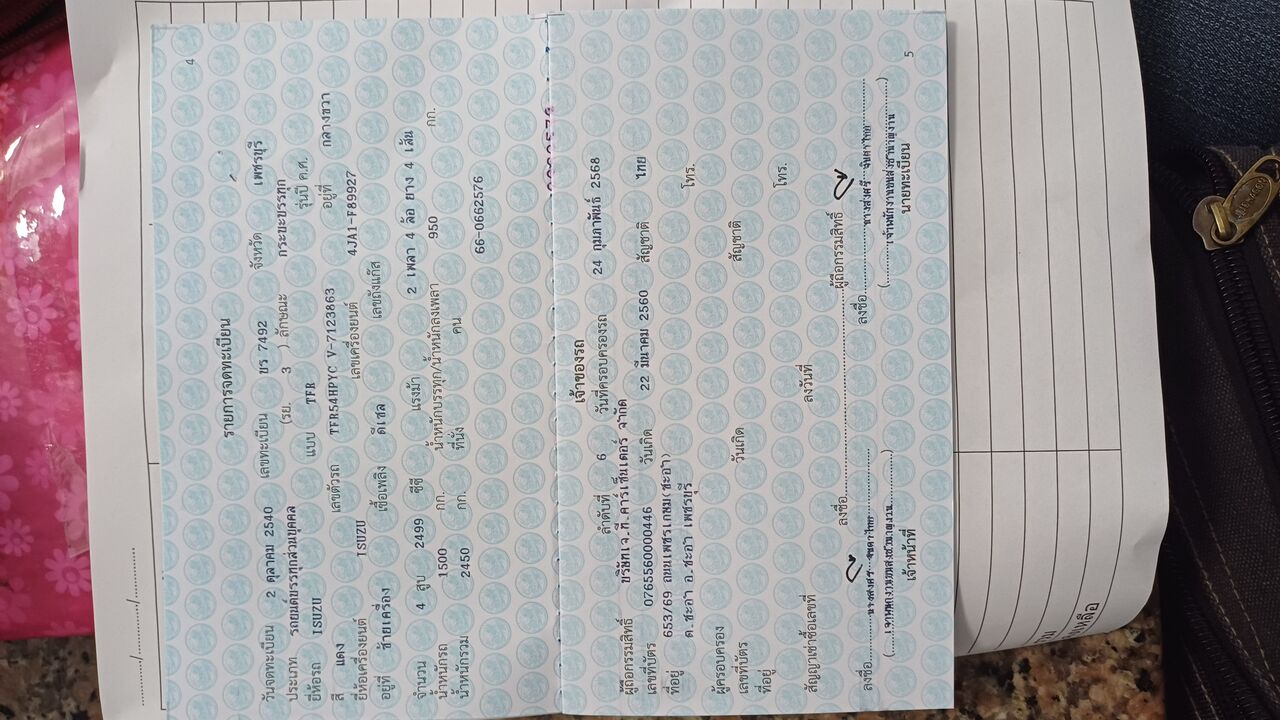 4
รายการจดทะเบียน
วันจดทะเบียน 2 ตุลาคม 2540 เลขทะเบียน ขร 7492 จังหวัด เพชรบุรี
ประเภท รถยนต์บรรทุกส่วนบุคคล (รย. 3 ) ลักษณะ กระบะบรรทุก
ยี่ห้อรถ ISUZU แบบ TFR รุ่นปี ค.ศ.
สี แดง เลขตัวรถ TFR54HPYC V-7123863 อยู่ที่ กลางขวา
ยี่ห้อเครื่องยนต์ ISUZU เลขเครื่องยนต์ 4JA1-F89927
อยู่ที่ ซ้ายเครื่อง เชื้อเพลิง ดีเซล เลขถังแก๊ส
จำนวน 4 สูบ 2499 ซีซี แรงม้า 2 เพลา 4 ล้อ ยาง 4 เส้น
น้ำหนักรถ 1500 กก. น้ำหนักบรรทุก/น้ำหนักลงเพลา 950 กก.
น้ำหนักรวม 2450 กก. ที่นั่ง คน
66-0662576
เจ้าของรถ
ลำดับที่ 6 วันที่ครอบครองรถ 24 กุมภาพันธ์ 2568
ผู้ถือกรรมสิทธิ์ บริษัทเจ.ที.คาร์เซ็นเตอร์ จำกัด
เลขที่บัตร 0765560000446 วันเกิด 22 มีนาคม 2560 สัญชาติ ไทย
ที่อยู่ 653/69 ถนนเพชรเกษม(ชะอำ) โทร.
ต.ชะอำ อ.ชะอำ เพชรบุรี
ผู้ครอบครอง
เลขที่บัตร วันเกิด สัญชาติ
ที่อยู่ โทร.
สัญญาเช่าซื้อเลขที่ ลงวันที่
ลงชื่อ ผู้ถือกรรมสิทธิ์
ลงชื่อ ลงชื่อ
เจ้าหน้าที่ นายทะเบียน
5